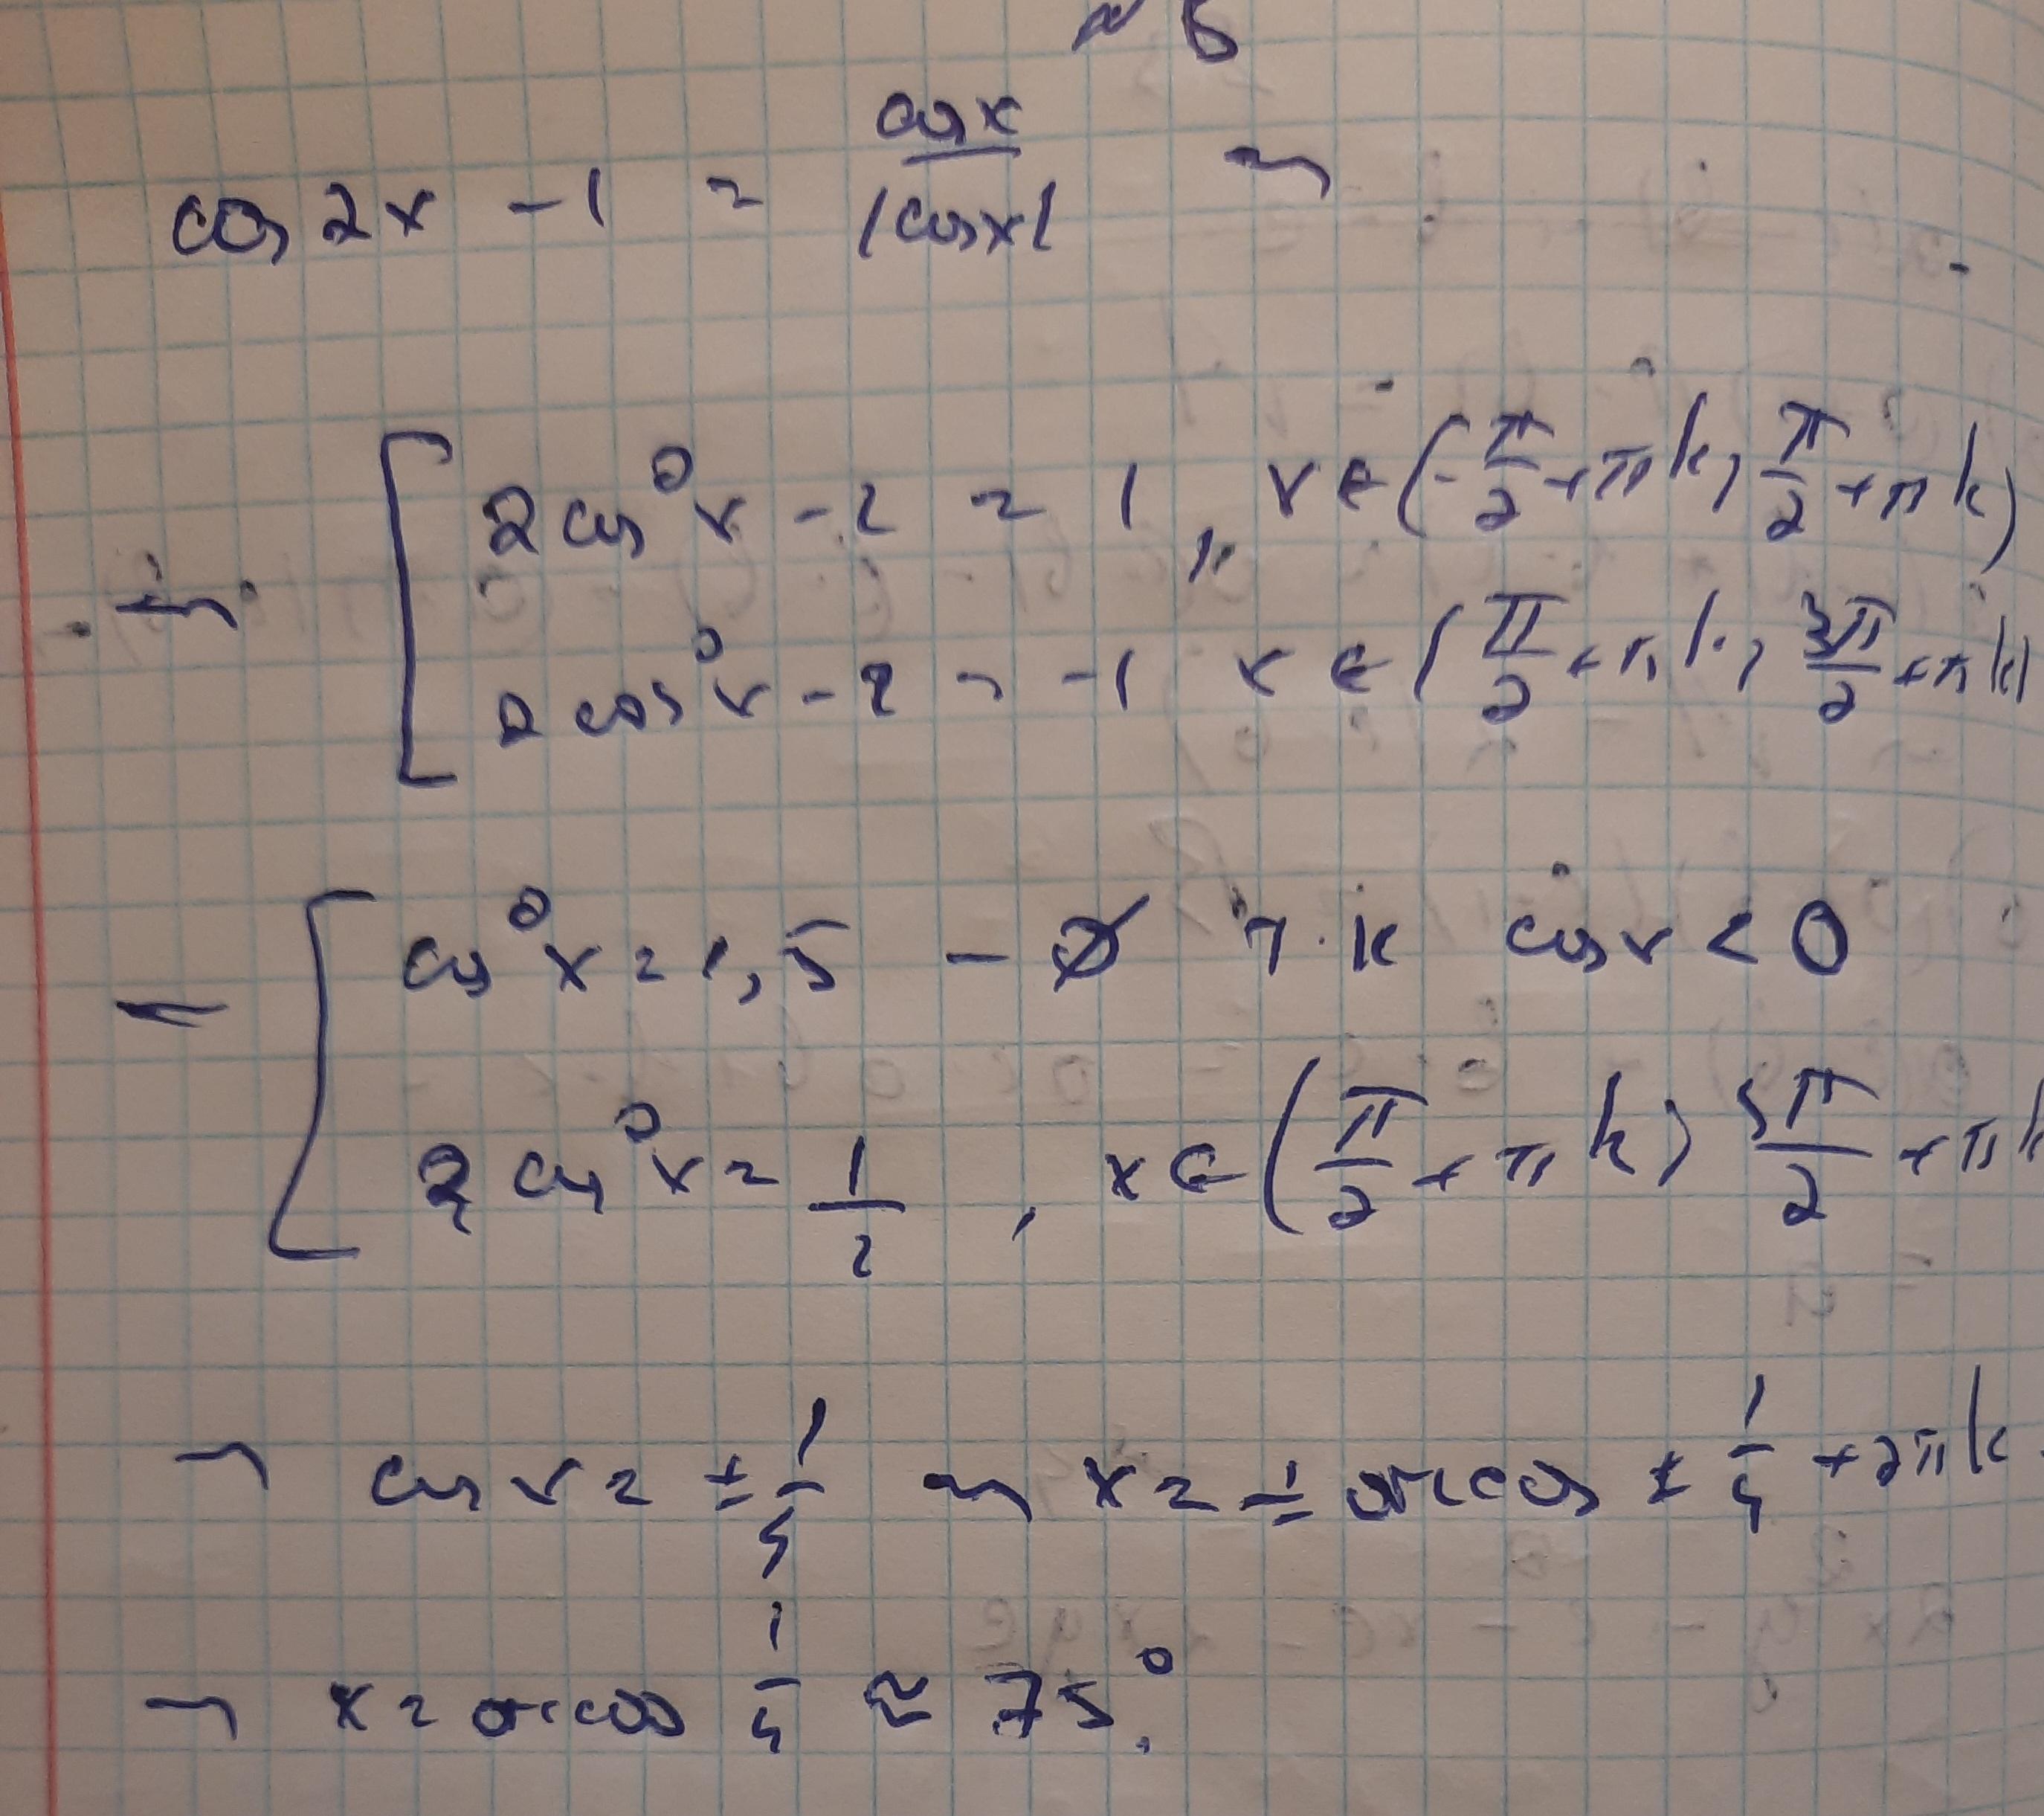 № 5
cos 2x - 1 = cos x / |cos x| ⇒
⇒ [ 2cos²x - 2 = 1, x ∈ (-π/2 + πk, π/2 + πk)
2cos²x - 2 = -1 x ∈ (π/2 + πk, 3π/2 + πk)
[ cos²x = 1,5 - ∅ т.к cos x < 0
2cos²x = 1/2, x ∈ (π/2 + πk, 3π/2 + πk
⇒ cos x = ± 1/4 ⇒ x = ± arccos ± 1/4 + 2πk
⇒ x = arccos 1/4 ≈ 75°.